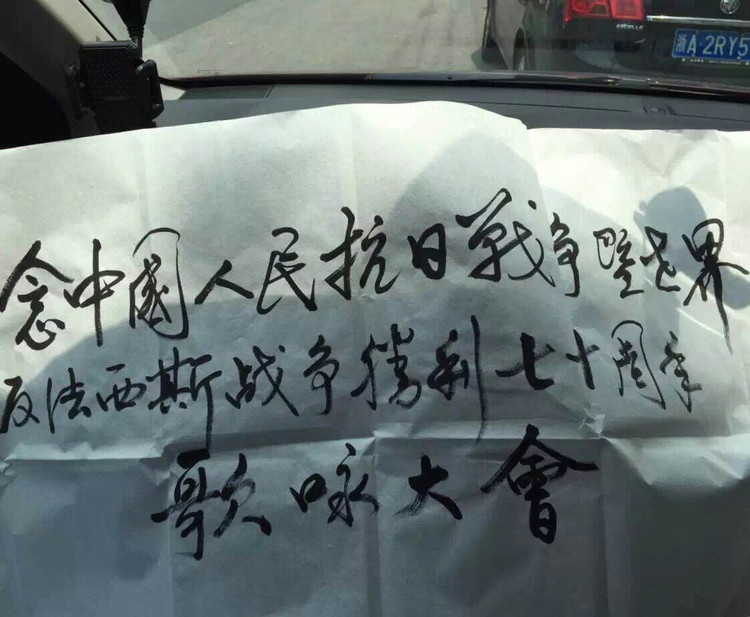 浙A·2RY5
念中國人民抗日戰争暨世界
反法西斯战争勝利七十周年
歌咏大會